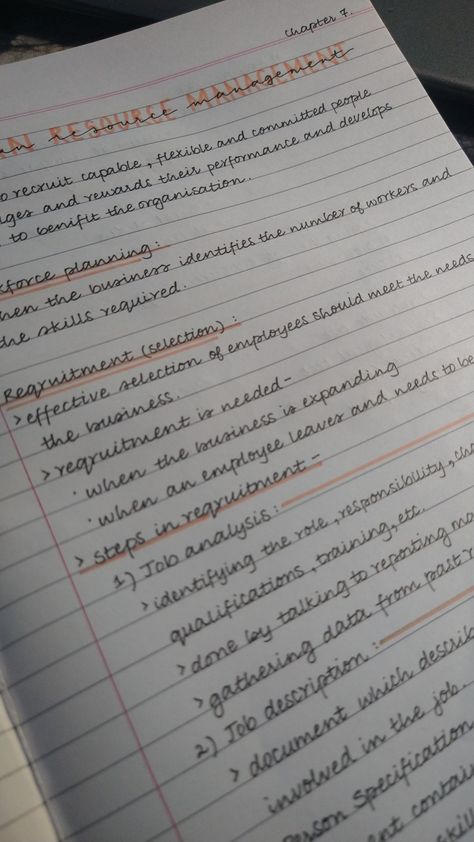 Chapter 7.
RESOURCE MANAGEMENT
resource management
o recruit capable, flexible and committed people
ages and rewards their performance and develops
to benifit the organisation.
force planning:
hen the business identifies the number of workers and
the skills required.
Reqruitment (selection):
> effective selection of employees should meet the needs
the business.
> reqruitment is needed-
· when the business is expanding
· when an employee leaves and needs to be
> steps in reqruitment -
1) Job analysis:
> identifying the role, responsibility,
qualifications, training, etc.
> done by talking to reporting
> gathering data from past
2) Job description:
> document which describ
involved in the job.
Person Specification
ent contain
skill